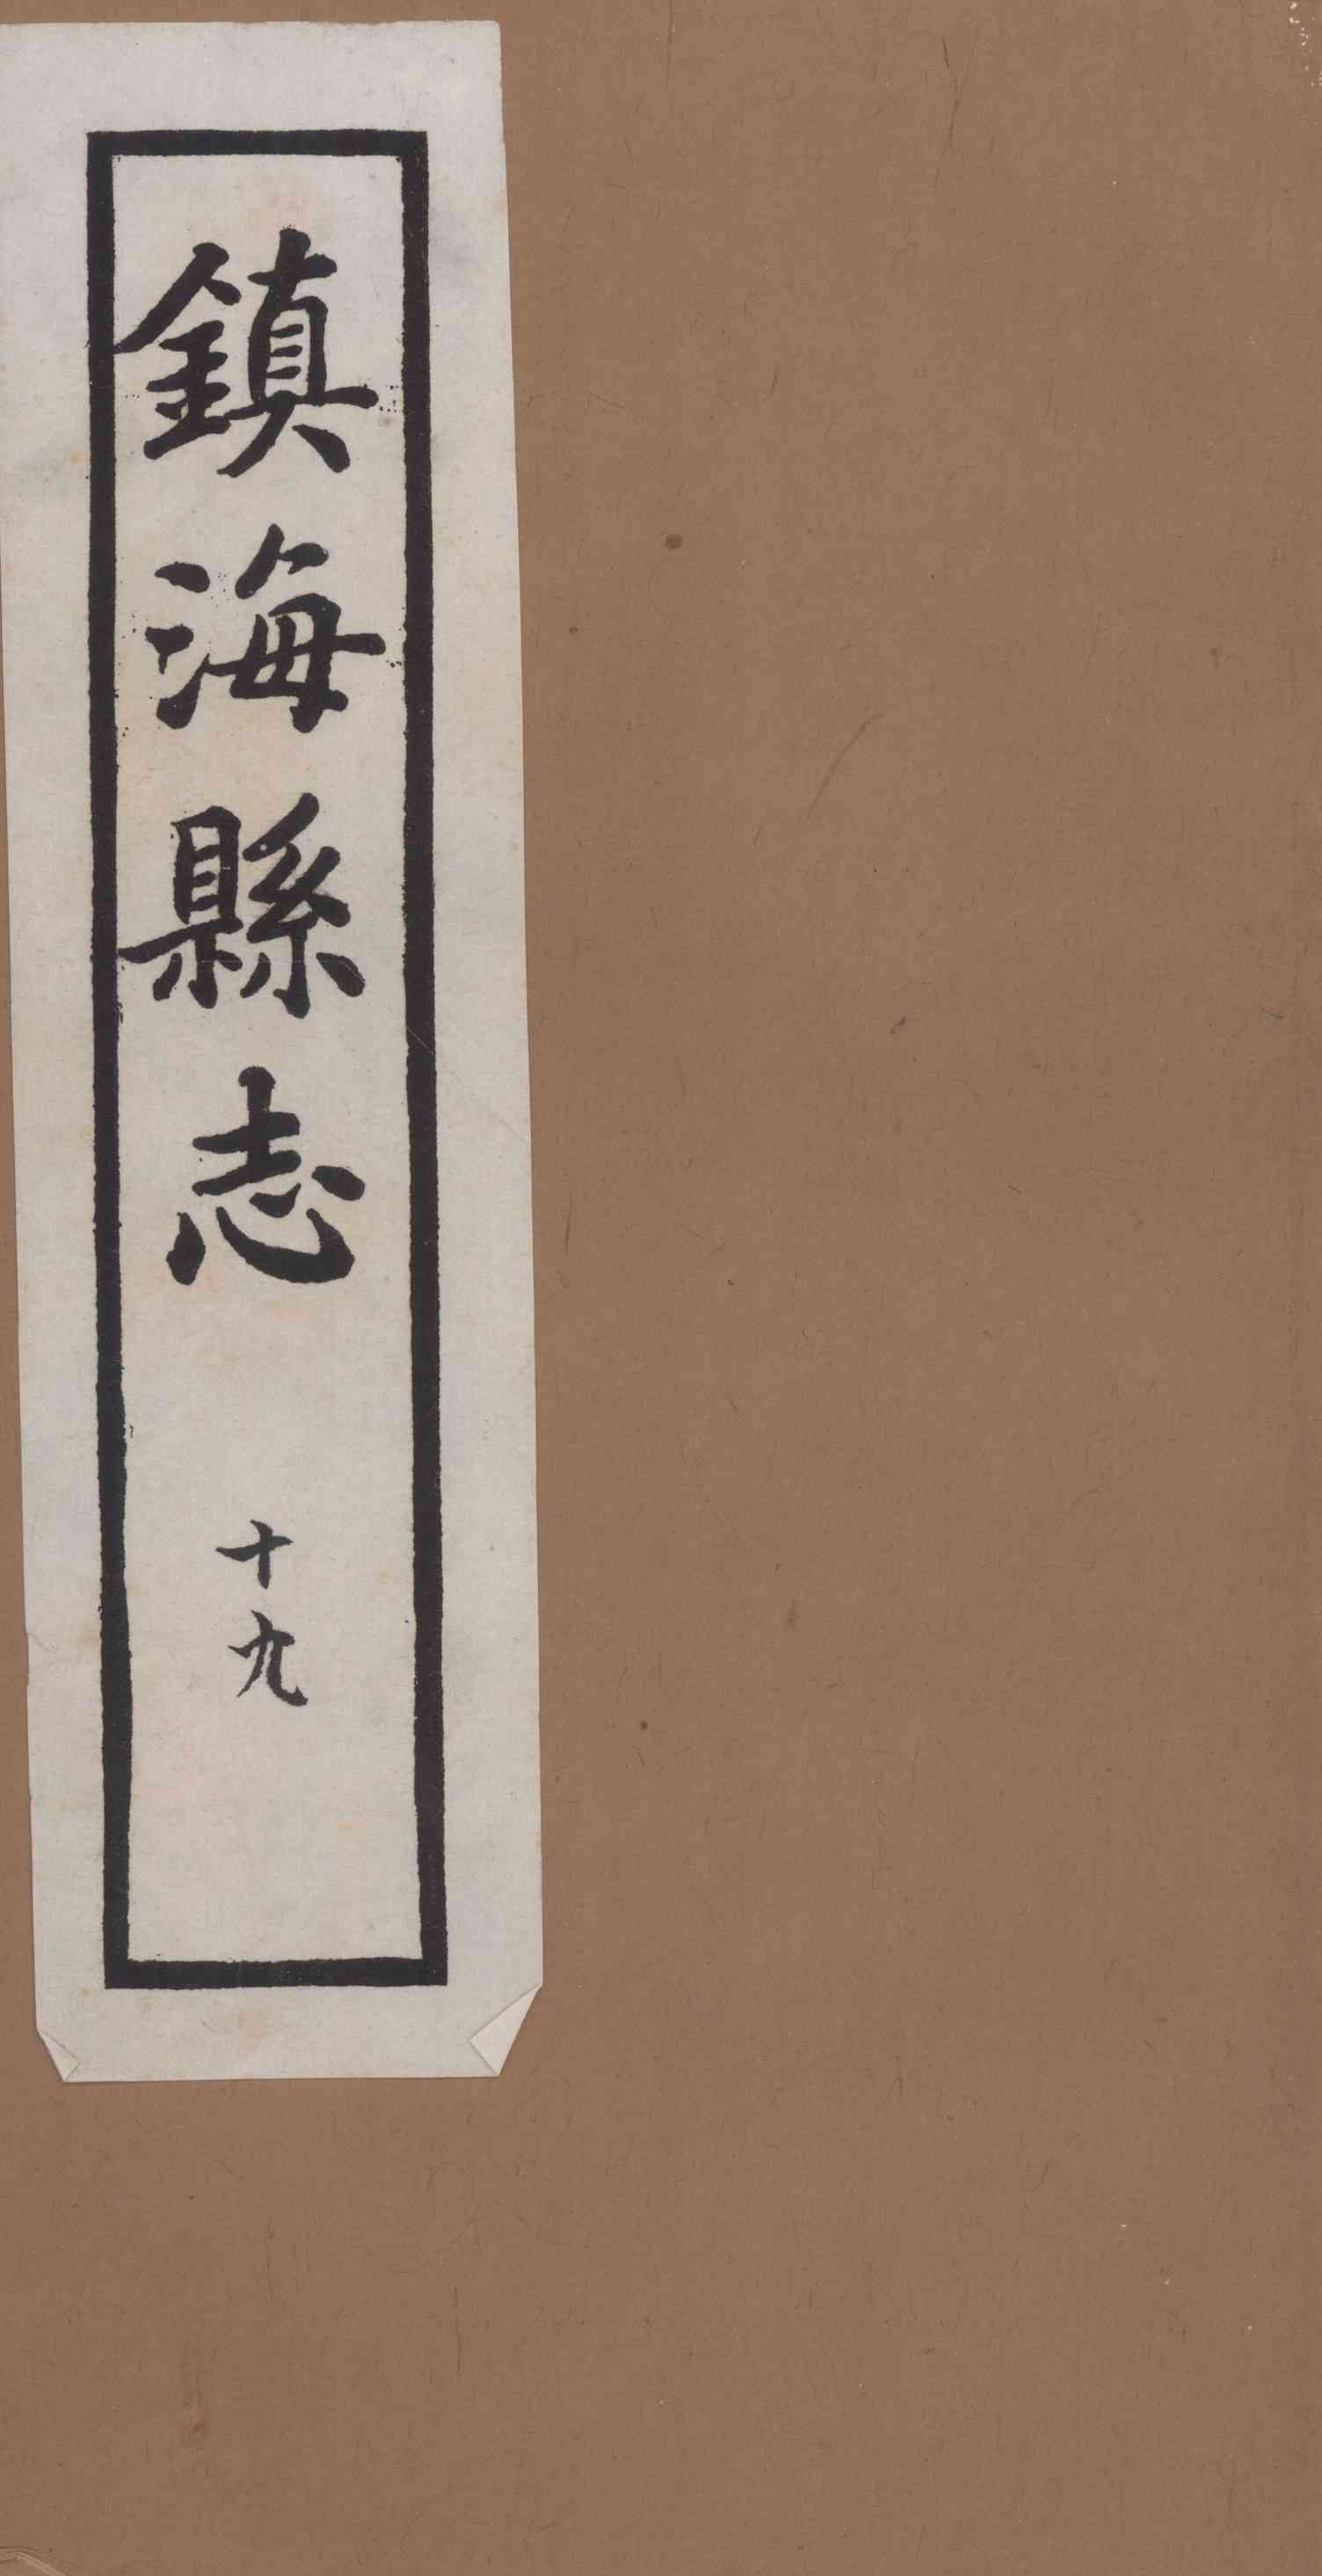 鎮海縣志
十九